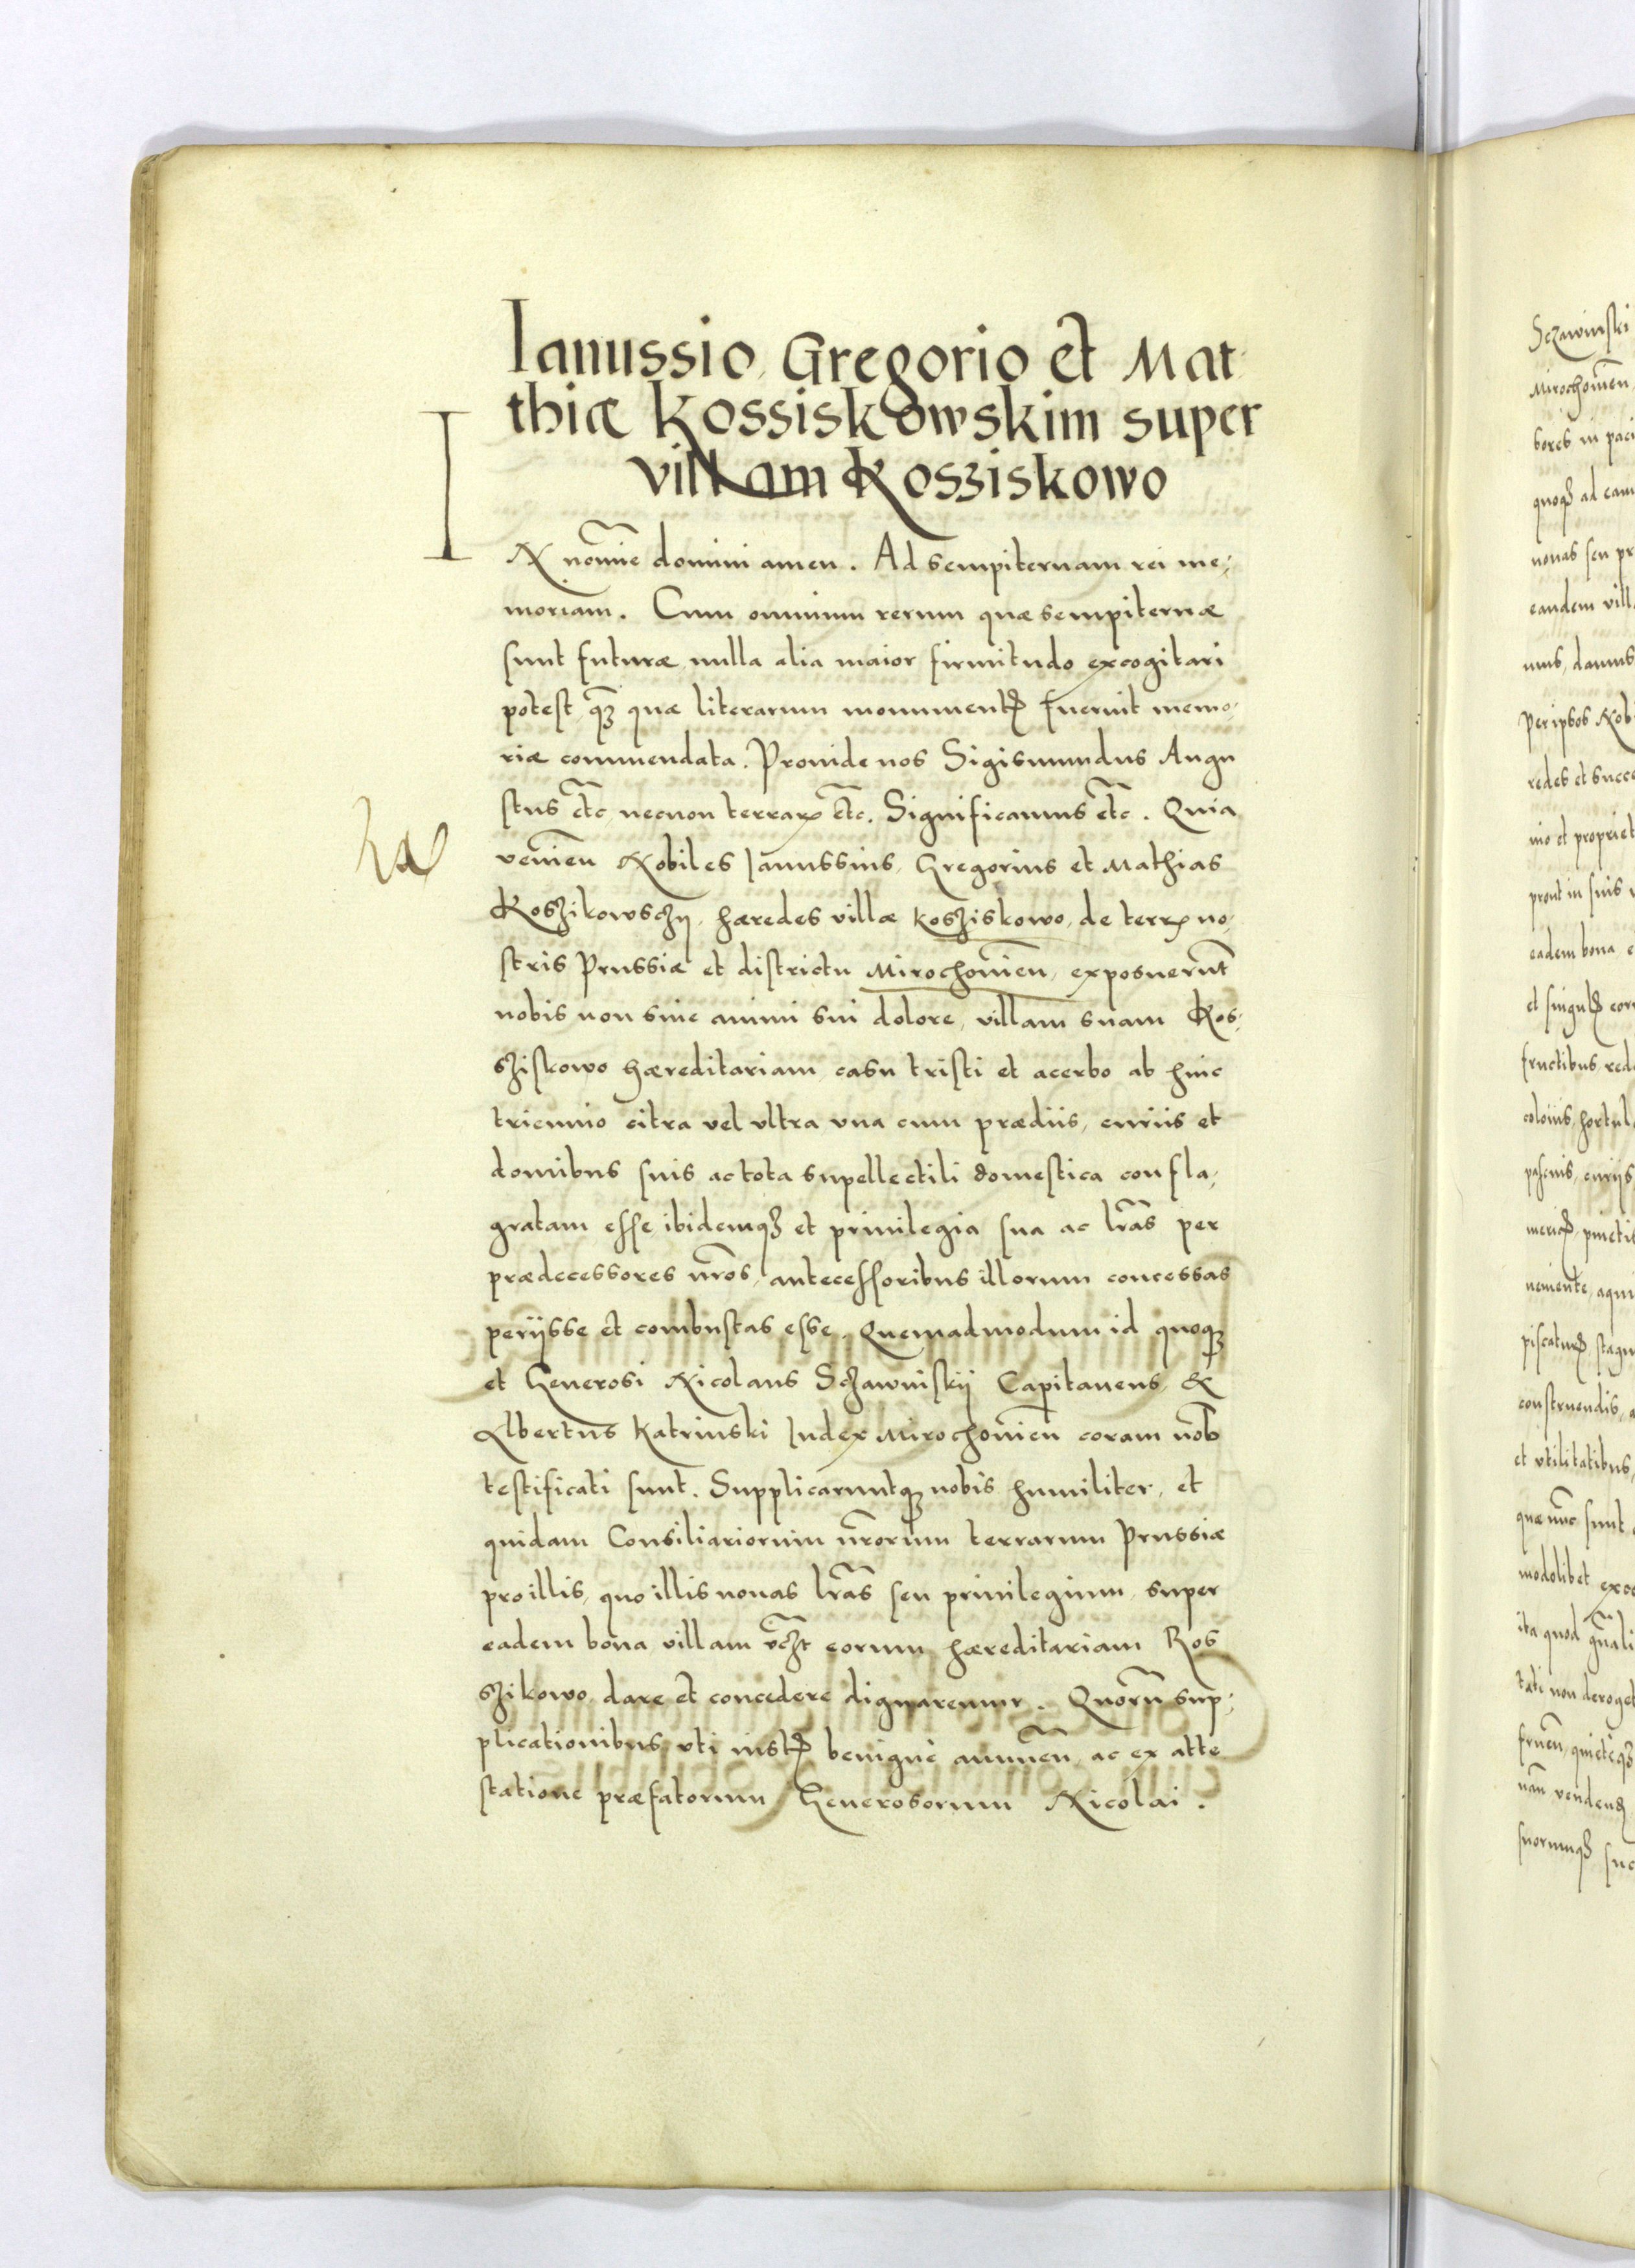 Ianussio, Gregorio et Mat-
thiæ Kossiskowskim super
villam Kosziskowo
IN nom̃ie domini amen. Ad sempiternam rei me-
moriam. Cum omnium rerum quæ sempiternæ
sunt futuræ nulla alia maior firmitudo excogitari
potest, qꝫ quæ literarum monumentꝭ fuerint memo-
riæ commendata. Proinde nos Sigismundus Augu
stus etc̃ necnon terrarꝝ etc̃. Significamus etc̃. Quia
venieñ Nobiles Ianussius, Gregorius et Mathias
Koszikowsczij, hæredes villæ Kosziskowo, de terrꝭ no-
stris Prussiæ et districtu Mirochovieñ, exposuerũt
nobis non sine animi sui dolore, villam suam Kos-
sziskowo hæreditariam casu tristi et acerbo ab hinc
triennio citra vel vltra vna cum prædiis, curiis et
domibus suis ac tota supellectili domestica confla-
gratam esse ibidemqꝫ et priuilegia sua ac lr̃as per
prædecessores nr̃os, antecessoribus illorum concessas
perijsse et combustas esse. Quemadmodum id quoqꝫ
et Generosi Nicolaus Sczawinskij Capitaneus, &
Albertus Katrinski Iudex Mirochovieñ coram nob̃
testificati sunt. Supplicaruntqꝫ nobis humiliter, et
quidam Consiliariorum nr̃orum terrarum Prussiæ
pro illis, quo illis nouas lr̃as seu priuilegium, super
eadem bona villam vczt̃ eorum hæreditariam Kos
szikowo dare et concedere dignaremur. Quorũ sup-
plicationibus vti iustꝭ benigne annueñ, ac ex atte
statione præfatorum Generosorum Nicolai.
Sczawinski
Mirochovieñ
quoqꝫ ad eam
nouas seu pr
eandem vill
mus, damus
per ipsos Nob
redes et succe
nio et propriet
prout in suis
eadem bona
et singulꝭ eor
fructibus, red
coloniis, hortul
construendis, a
et vtilitatibus,
quæ nũc sunt
modolibet exc
ita quod gñali
tati non deroget